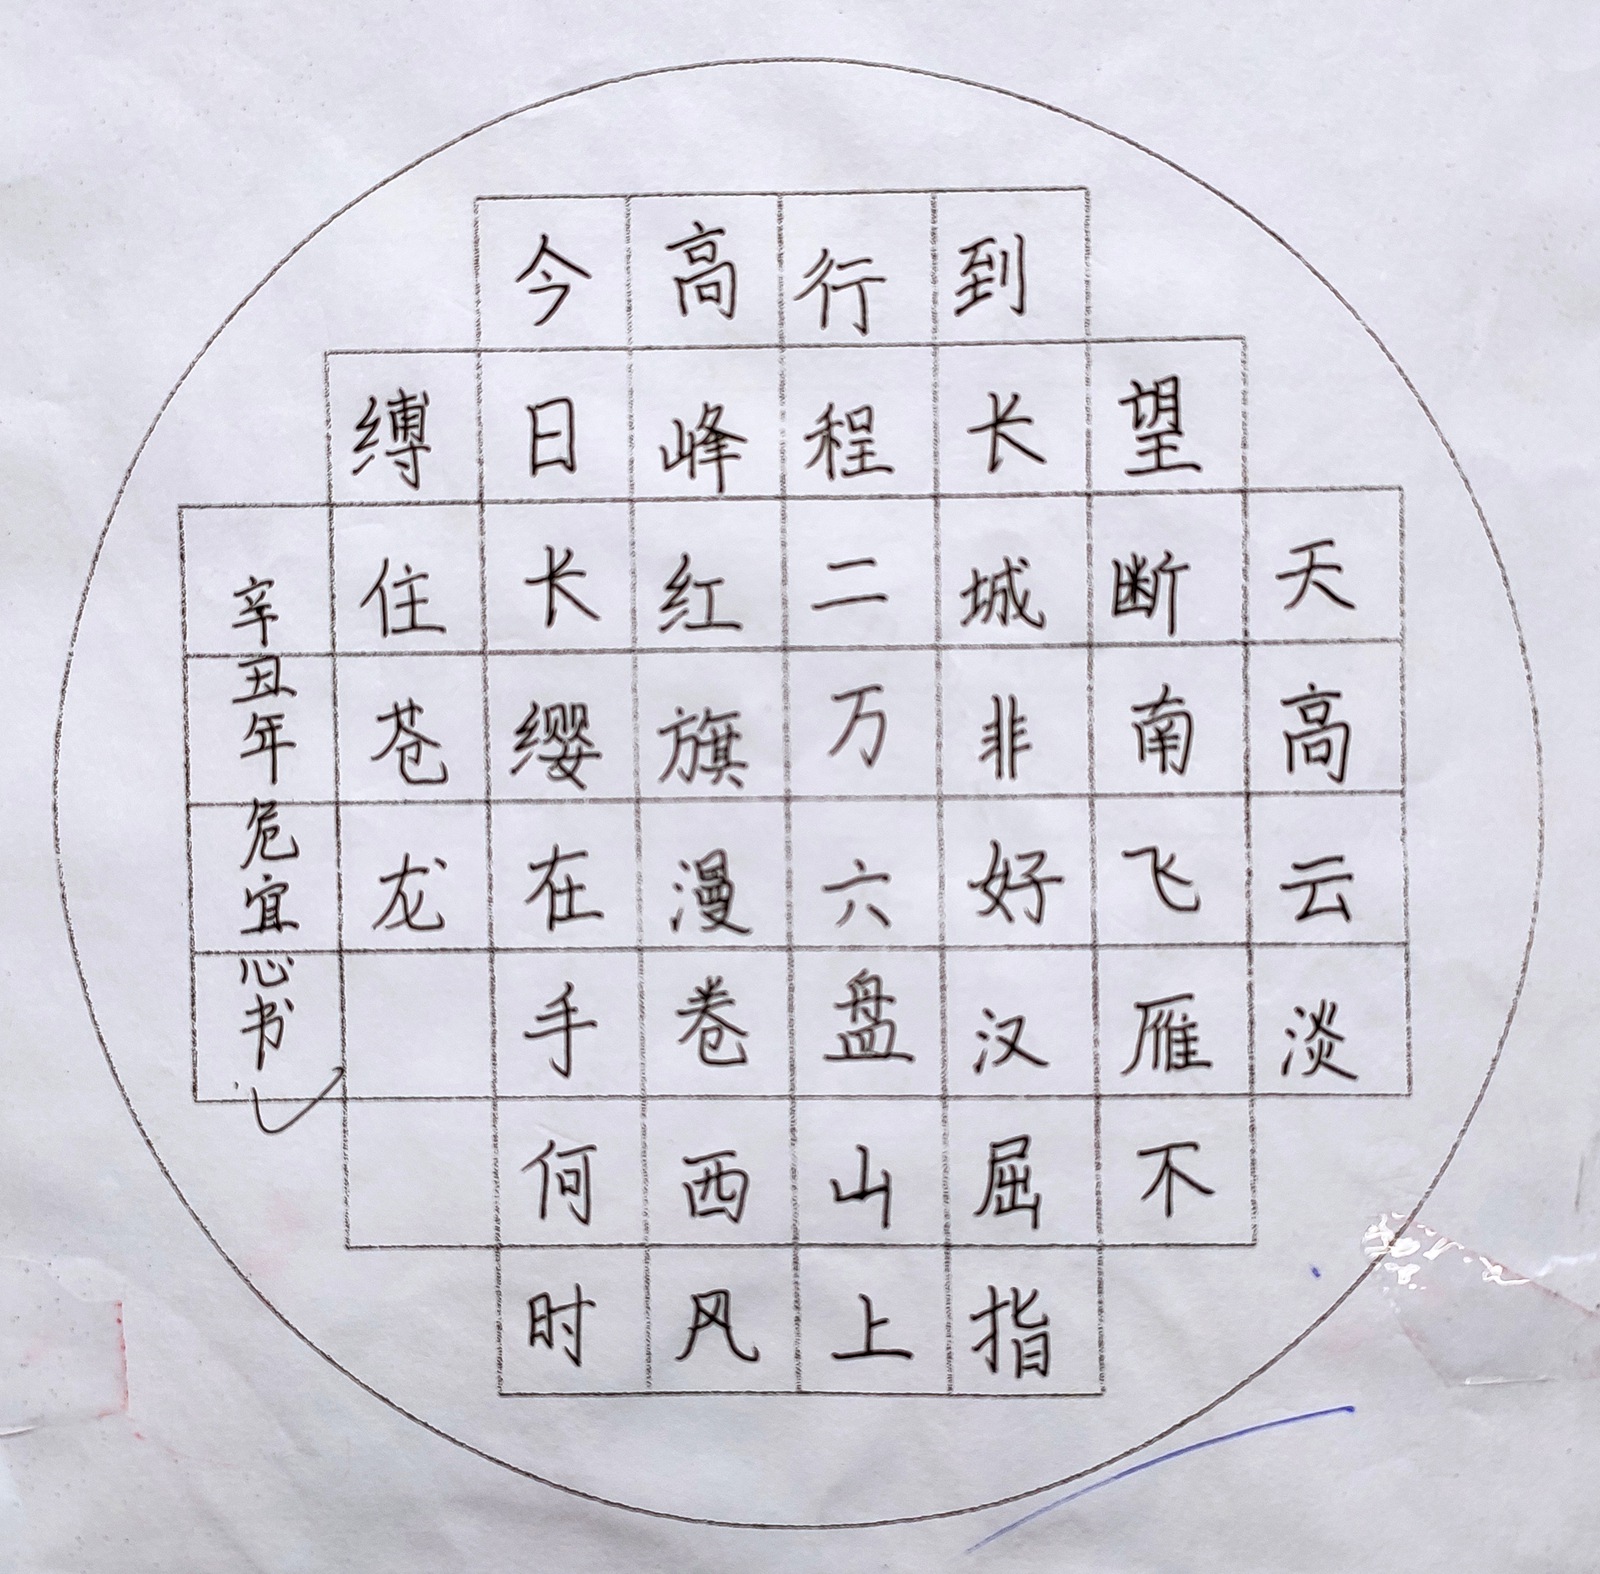 天高云淡
望断南飞雁不
到长城非好汉屈指
行程二万六盘山上
高峰红旗漫卷西风
今日长缨在手何时
缚住苍龙
辛丑年危宜心书